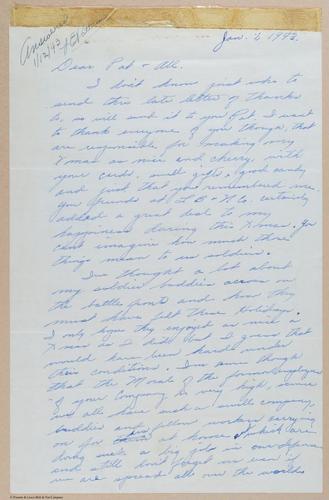 Answered
1/12/43
Jan. 6, 1943.
Dear Pat & All.
I don't know just who to
send this late letter of thanks
to, so will send it to you Pat. I want
to thank everyone of you though, that
are responsible for making my
Xmas so nice and cheery, with
your cards, small gifts, good candy
and just that you remembered me.
You friends at L B & N Co. certainly
added a great deal to my
happiness during this Xmas. You
can't imagine how much these
things mean to us soldiers.
I've thought a lot about
my soldier buddies across on
the battle front and how they
must have felt these Holidays.
I only hope they enjoyed as nice a
Xmas as I did but I guess that
would have been hard under
their conditions. I'm sure though
that the Morale of the former employees
of your Company is very high, since
we all have such a swell company,
buddies and fellow workers carrying
on for us at home which are
doing such a big job in our defense
and still don't forget us even if
we are spread all over the world.